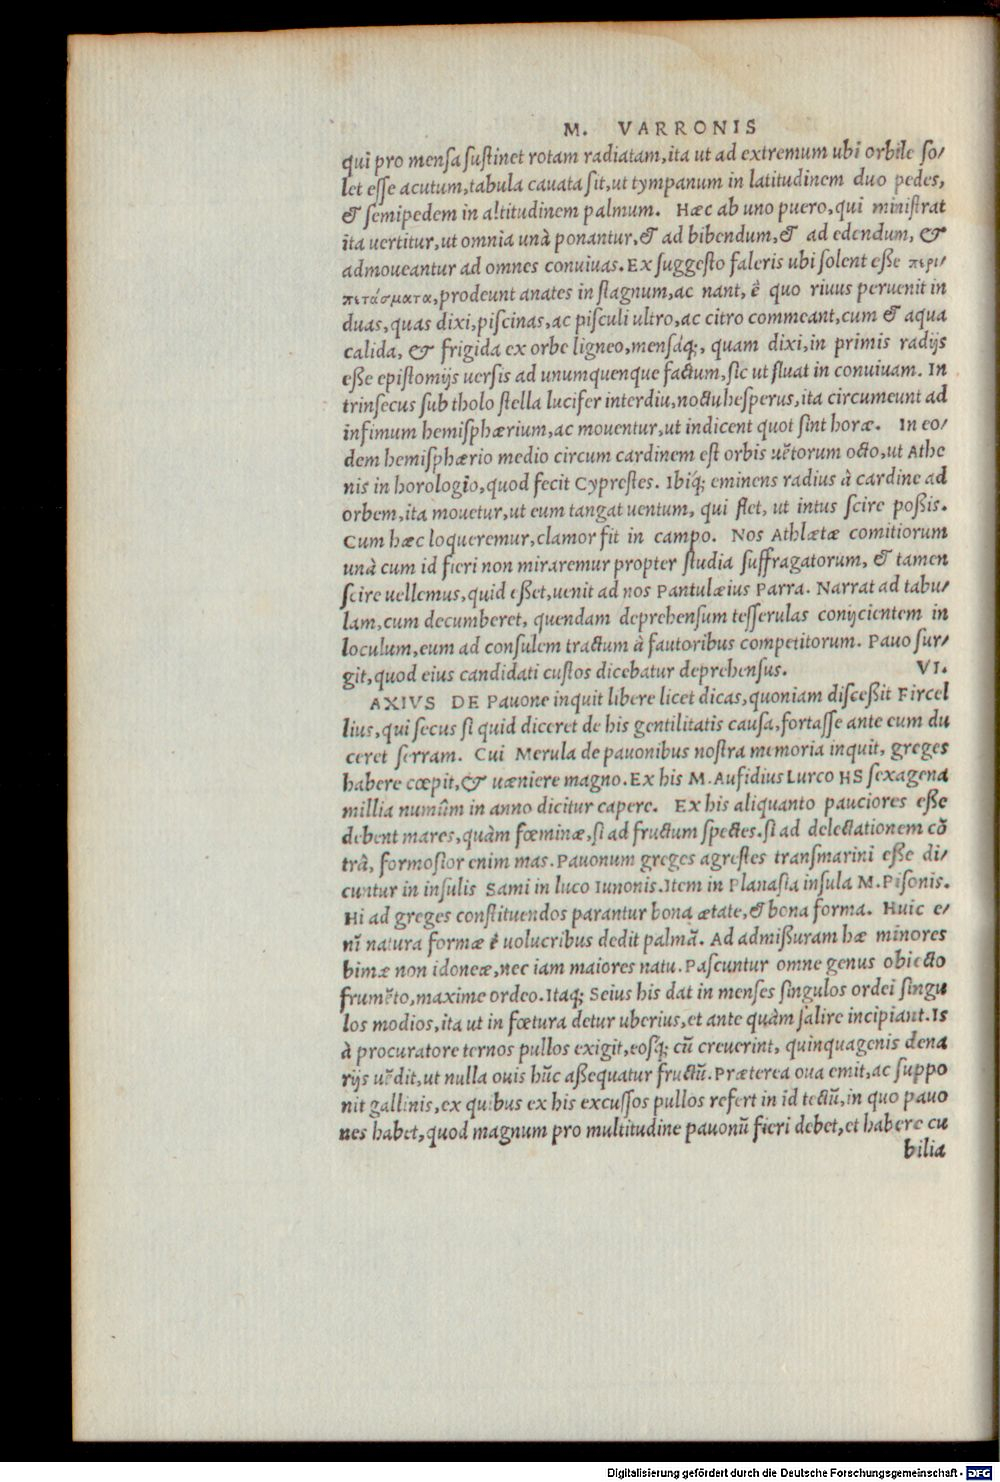 M. VARRONIS
qui pro mensa sustinet rotam radiatam, ita ut ad extremum ubi orbile so/
let esse acutum, tabula cauata sit, ut tympanum in latitudinem duo pedes,
& semipedem in altitudinem palmum. Hæc ab uno puero, qui ministrat
ita uertitur, ut omnia unà ponantur, & ad bibendum, & ad edendum, &
admoueantur ad omnes conuiuas. Ex suggesto faleris ubi solent eße περι/
πετάσματα, prodeunt anates in stagnum, ac nant, è quo riuus peruenit in
duas, quas dixi, piscinas, ac pisculi ultro, ac citro commeant, cum & aqua
calida, & frigida ex orbe ligneo, mensáq;, quam dixi, in primis radijs
eße epistomijs uersis ad unumquenque factum, sic ut fluat in conuiuam. In
trinsecus sub tholo stella lucifer interdiu, noctu hesperus, ita circumeunt ad
infimum hemisphærium, ac mouentur, ut indicent quot sint horæ. In eo/
dem hemisphærio medio circum cardinem est orbis uẽtorum octo, ut Athe
nis in horologio, quod fecit Cyprestes. Ibiq́; eminens radius à cardine ad
orbem, ita mouetur, ut eum tangat uentum, qui flet, ut intus scire poßis.
Cum hæc loqueremur, clamor fit in campo. Nos Athlætæ comitiorum
unà cum id fieri non miraremur propter studia suffragatorum, & tamen
scire uellemus, quid eßet, uenit ad nos Pantulæius Parra. Narrat ad tabu/
lam, cum decumberet, quendam deprehensum tesserulas conijcientem in
loculum, eum ad consulem tractum à fautoribus competitorum. Pauo sur/
git, quod eius candidati custos dicebatur deprehensus. VI.
AXIVS DE Pauone inquit libere licet dicas, quoniam discessit Fircel
lius, qui secus si quid diceret de his gentilitatis causa, fortasse ante eum du
ceret serram. Cui Merula de pauonibus nostra memoria inquit, greges
habere cœpit, & uæniere magno. Ex his M. Aufidius Lurco HS sexagena
millia numûm in anno dicitur capere. Ex his aliquanto pauciores eße
debent mares, quàm fœminæ, si ad fructum spectes. si ad delectationem cõ
trà, formosior enim mas. Pauonum greges agrestes transmarini eße di/
cuntur in insulis Sami in luco Iunonis. Item in Planasia insula M. Pisonis.
Hi ad greges constituendos parantur bona ætate, & bona forma. Huic e/
nĩ natura formæ è uolucribus dedit palmã. Ad admißuram hæ minores
bimæ non idoneæ, nec iam maiores natu. Pascuntur omne genus obiecto
frumẽto, maxime ordeo. Itaq; Seius his dat in menses singulos ordei singu
los modios, ita ut in fœtura detur uberius, et ante quàm salire incipiant. Is
à procuratore ternos pullos exigit, eosq́; cũ creuerint, quinquagenis dena
rijs uẽdit, ut nulla ouis hũc aßequatur fructũ. Præterea oua emit, ac suppo
nit gallinis, ex quibus ex his excussos pullos refert in id tectũ, in quo pauo
nes habet, quod magnum pro multitudine pauonũ fieri debet, et habere cu
bilia
Digitalisierung gefördert durch die Deutsche Forschungsgemeinschaft - DFG